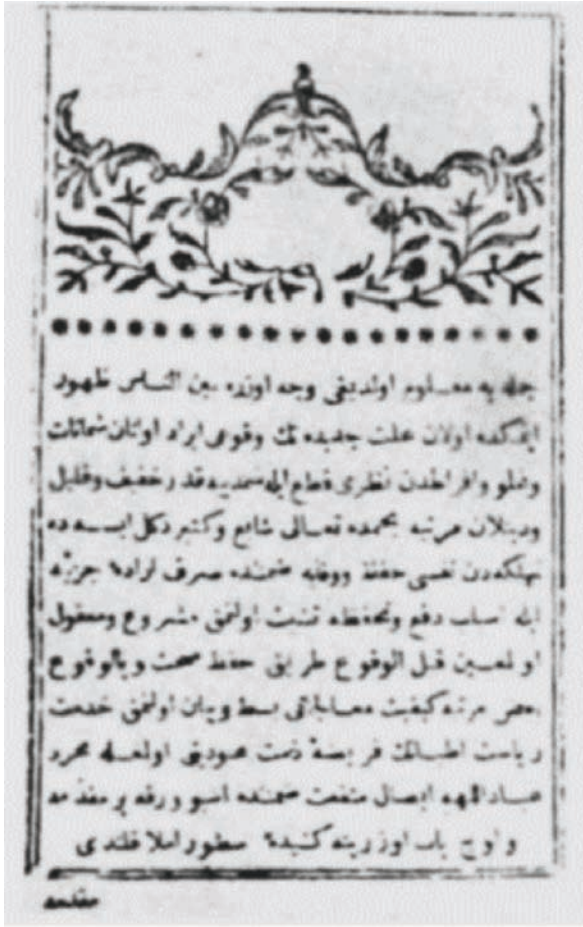 جمله يه معلوم اولديغى وجه اوزره بين الناس ظهور
ايتمكده اولان علت جديده نك وقوعى ايراد اولنان شماتات
وغلو وافراطدن نظرى قطع ايله شمديه قدر خفيف وقليل
مرتبه بحمده تعالى شايع وكثير دكل ايسه ده
مهلكه دن نفسى حفظ ووقايه ضمننده صرف اراده جزئيه
ايله اسباب دفع وتحفظه تشبث اولنمق مشروع ومعقول
اولمغين قبل الوقوع طريق حفظ صحت وبالوقوع
بعض مرتبه كيفيت معالجاتى بسط وبيان اولنمق خدمت
رياست اطبانك فريضه ذمت عبوديتى اولمغله مجرد
عباداللهه ايصال منفعت ضمننده اشبو ورقه بر مقدمه
واوچ باب اوزرينه كشيده سطور املا قلندى
مقدمه